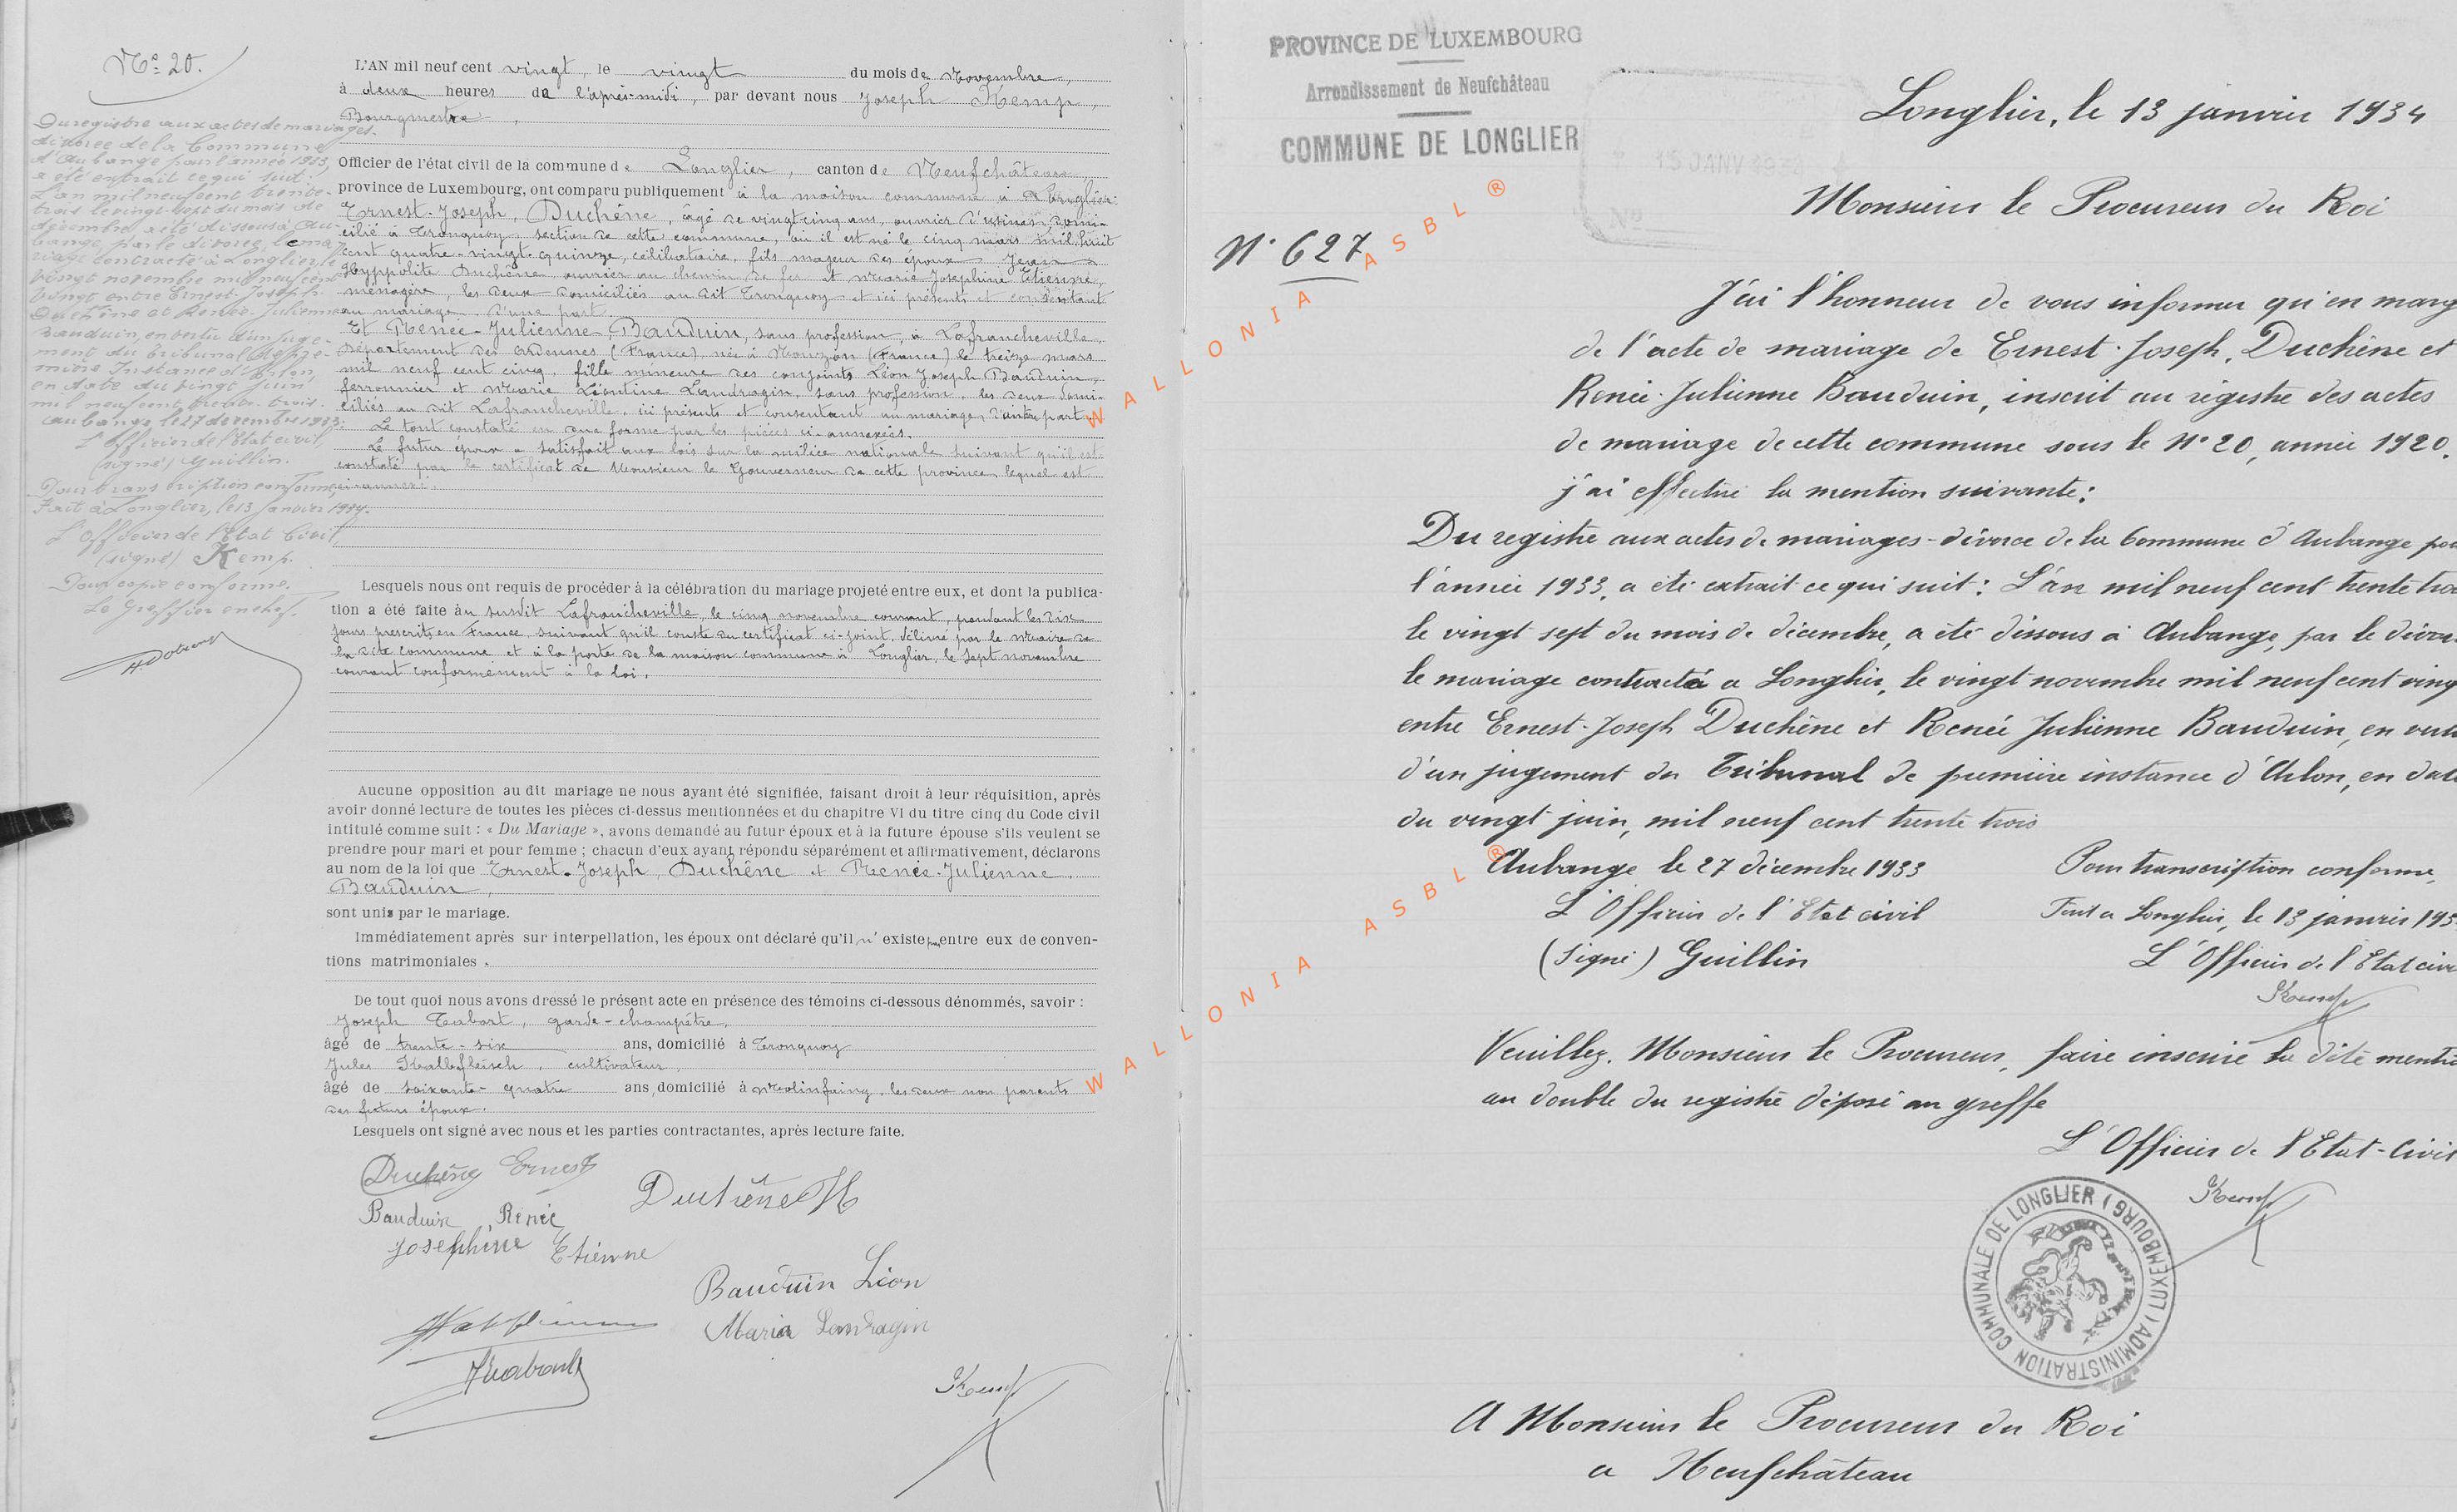 Nº 20.
L'AN mil neuf cent vingt, le vingt du mois de Novembre,
à deux heures de l'après-midi, par devant nous Joseph Kemp,
Bourgmestre,
Officier de l'état civil de la commune de Longlier, canton de Neufchâteau,
province de Luxembourg, ont comparu publiquement à la maison commune à Longlier:
Ernest-Joseph, Duchêne, âgé de vingt cinq ans, ouvrier d'usines, domi-
cilié à Tronquoy, section de cette commune, où il est né le cinq mars mil huit
cent quatre-vingt-quinze, célibataire, fils majeur des époux Jean
Hyppolite Duchêne ouvrier au chemin de fer et Marie Josephine Etienne,
ménagère, les deux domiciliés au dit Tronquoy et ici présents et consentant
au mariage, d'une part
Et Renée-Julienne Bauduin, sans profession, à Lafrancheville
département des Ardennes (France), née à Mouzon (France) le treize mars
mil neuf cent cinq, fille mineure des conjoints Léon Joseph Bauduin,
ferronnier et Marie Léontine Landragin, sans profession, les deux domi-
ciliés au dit Lafrancheville, ici présents et consentant au mariage, d'autre part.
Le tout constaté en due forme par les pièces ci-annexées.
Le futur époux a satisfait aux lois sur la milice nationale suivant qu'il est
constaté par le certificat de Monsieur le Gouverneur de cette province lequel est
ci-annexé.
Du registre aux actes de mariages.
divorce de la Commune
d'Aubange pour l'année 1933,
a été extrait ce qui suit:
L'an mil neuf cent trente-
trois le vingt-sept du mois de
décembre, a été dissous à Au-
bange, par le divorce, le ma-
riage contracté à Longlier, le
vingt novembre mil neuf cent
vingt entre Ernest-Joseph
Duchêne et Renée-Julienne
Bauduin, en vertu d'un juge-
ment du tribunal de pre-
mière Instance d'Arlon,
en date du vingt juin
mil neuf cent trente-trois.
Aubange, le 27 décembre 1933
L'Officier de l'Etat civil,
(signé) Guillin.
Pour transcription conforme,
Fait à Longlier, le 13 Janvier 1934.
L'Officier de l'Etat Civil,
(signé) Kemp.
Pour copie conforme,
Le Greffier en chef.
Lesquels nous ont requis de procéder à la célébration du mariage projeté entre eux, et dont la publica-
tion a été faite au susdit Lafrancheville, le cinq novembre courant, pendant les dix
jours prescrits en France suivant qu'il conste du certificat ci-joint, délivré par le Maire de
la dite commune et à la porte de la maison commune à Longlier, le sept novembre
courant conformément à la loi.
Aucune opposition au dit mariage ne nous ayant été signifiée, faisant droit à leur réquisition, après
avoir donné lecture de toutes les pièces ci-dessus mentionnées et du chapitre VI du titre cinq du Code civil
intitulé comme suit : « Du Mariage », avons demandé au futur époux et à la future épouse s'ils veulent se
prendre pour mari et pour femme ; chacun d'eux ayant répondu séparément et affirmativement, déclarons
au nom de la loi que Ernest-Joseph, Duchêne et Renée-Julienne
Bauduin,
sont unis par le mariage.
Immédiatement après sur interpellation, les époux ont déclaré qu'il n'existe pas entre eux de conven-
tions matrimoniales.
De tout quoi nous avons dressé le présent acte en présence des témoins ci-dessous dénommés, savoir :
Joseph Tabart, garde-champêtre,
âgé de trente-six ans, domicilié à Tronquoy
Jules Kalbfleisch, cultivateur,
âgé de soixante-quatre ans, domicilié à Molinfaing, les deux non parents
des futurs époux.
Lesquels ont signé avec nous et les parties contractantes, après lecture faite.
Duchêne Ernest
Duchêne H
Bauduin Renée
Josephine Etienne
Bauduin Léon
Maria Landragin
Kemp
PROVINCE DE LUXEMBOURG
Arrondissement de Neufchâteau
COMMUNE DE LONGLIER
15 JANV 1934
Longlier, le 13 janvier 1934
Monsieur le Procureur du Roi
Nº 627
J'ai l'honneur de vous informer qu'en marg
de l'acte de mariage de Ernest-Joseph, Duchêne et
Renée-Julienne Bauduin, inscrit au registre des actes
de mariage de cette commune sous le Nº 20, année 1920.
j'ai effectué la mention suivante:
Du registre aux actes de mariages-divorce de la Commune d'Aubange pou
l'année 1933, a été extrait ce qui suit: L'an mil neuf cent trente troi
le vingt sept du mois de décembre, a été dissous à Aubange, par le divor
le mariage contracté a Longlier, le vingt novembre mil neuf cent ving
entre Ernest-Joseph Duchêne et Renée Julienne Bauduin, en vertu
d'un jugement du Tribunal de première instance d'Arlon, en date
du vingt juin, mil neuf cent trente trois
Aubange le 27 décembre 1933 Pour transcription conforme,
L'Officier de l'Etat civil Fait a Longlier, le 13 janvier 193
(signé) Guillin L'Officier de l'Etat civi
Kemp
Veuillez, Monsieur le Procureur, faire inscrire la dite mentio
au double du registre déposé au greffe
L'Officier de l'Etat-Civil
Kemp
ADMINISTRATION COMMUNALE DE LONGLIER (LUXEMBOURG)
A Monsieur le Procureur du Roi
a Neufchâteau
WALLONIA ASBL ®
WALLONIA ASBL ®